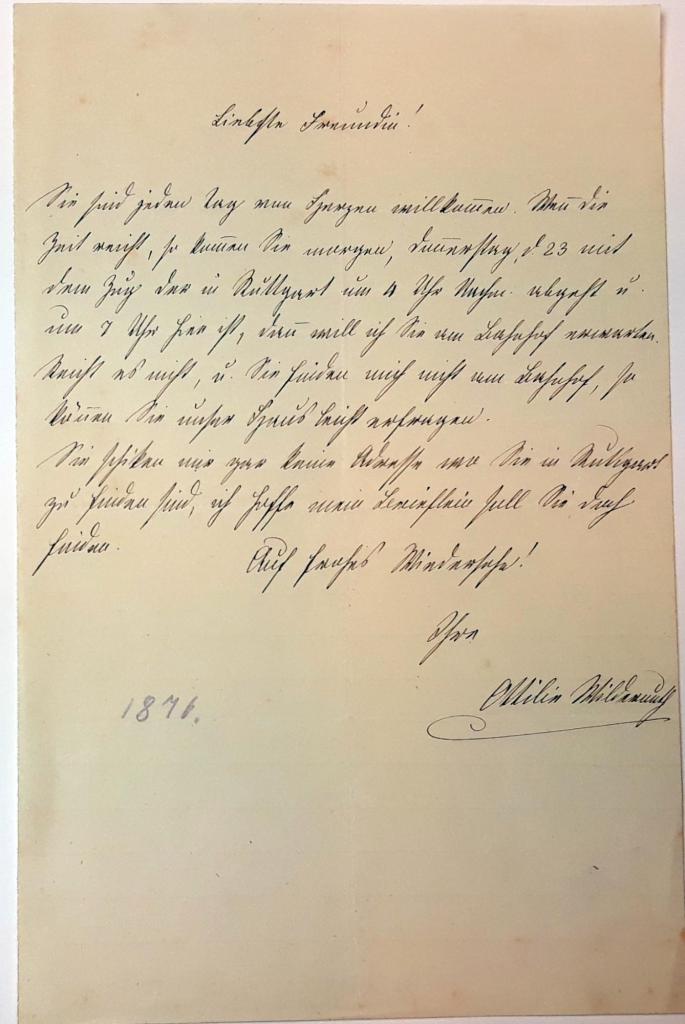 Liebste Freundin!
Sie sind jeden Tag von Herzen willkommen. Wen̅ die
Zeit reicht, so kom̅en Sie morgen, Don̅erstag, d 23 mit
dem Zug der in Stuttgart um 4 Uhr Nachm. abgeht u.
um 7 Uhr hier ist, dan̅ will ich Sie am Bahnhof erwarten.
Reicht es nicht, u. Sie finden mich nicht am Bahnhof, so
kön̅en Sie unser Haus leicht erfragen.
Sie schiken mir gar keine Adresse wo Sie in Stuttgart
zu finden sind, ich hoffe mein Brieflein soll Sie doch
finden.
Auf frohes Wiedersehe!
Ihre
Ottilie Wildermuth
1876.